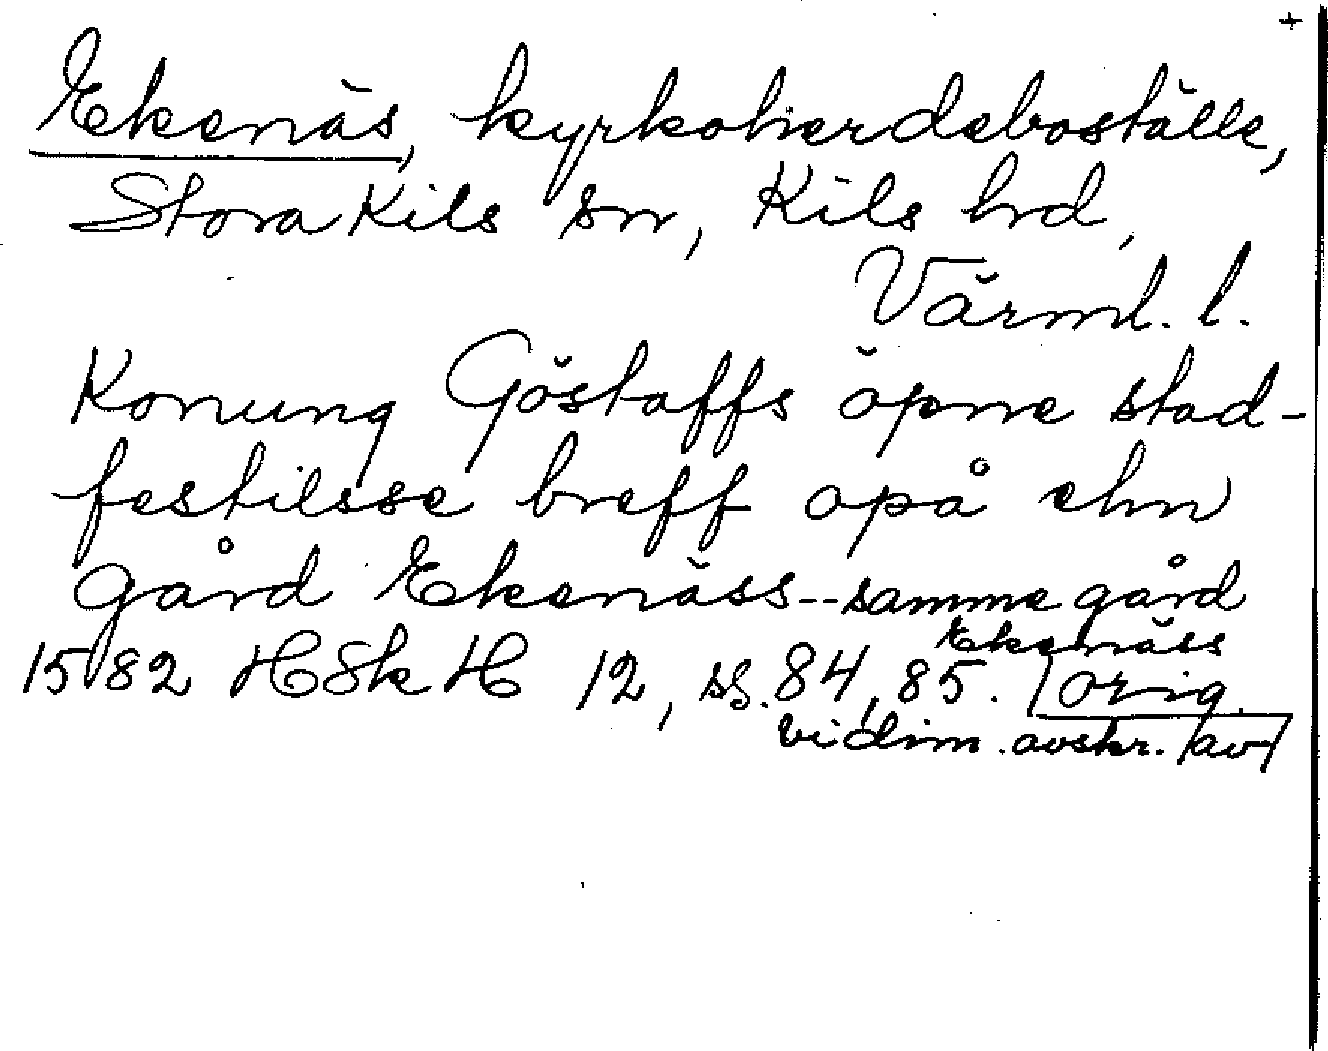 +
Ekenäs, kyrkoherdeboställe,
Stora Kils sn, Kils hrd,
Värml. l.
Konung Göstaffs öpne stad-
festilsse breff opå ehn
gård Ekenäss -- samme gård
Ekenäss
1582 HSkH 12, ss. 84, 85. orig.
vidim. avskr. av